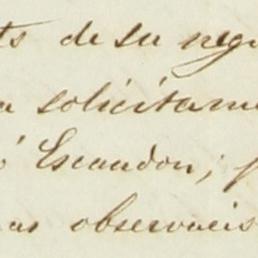 ts de su nego
a solicitame
ó Escandon; p
nas observacio